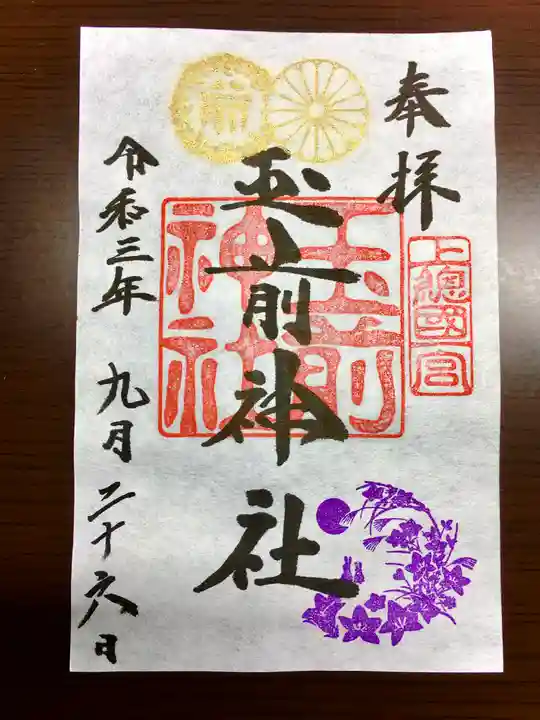 奉拝
上總國一宮
玉前神社
玉前神社
令和三年九月二十六日